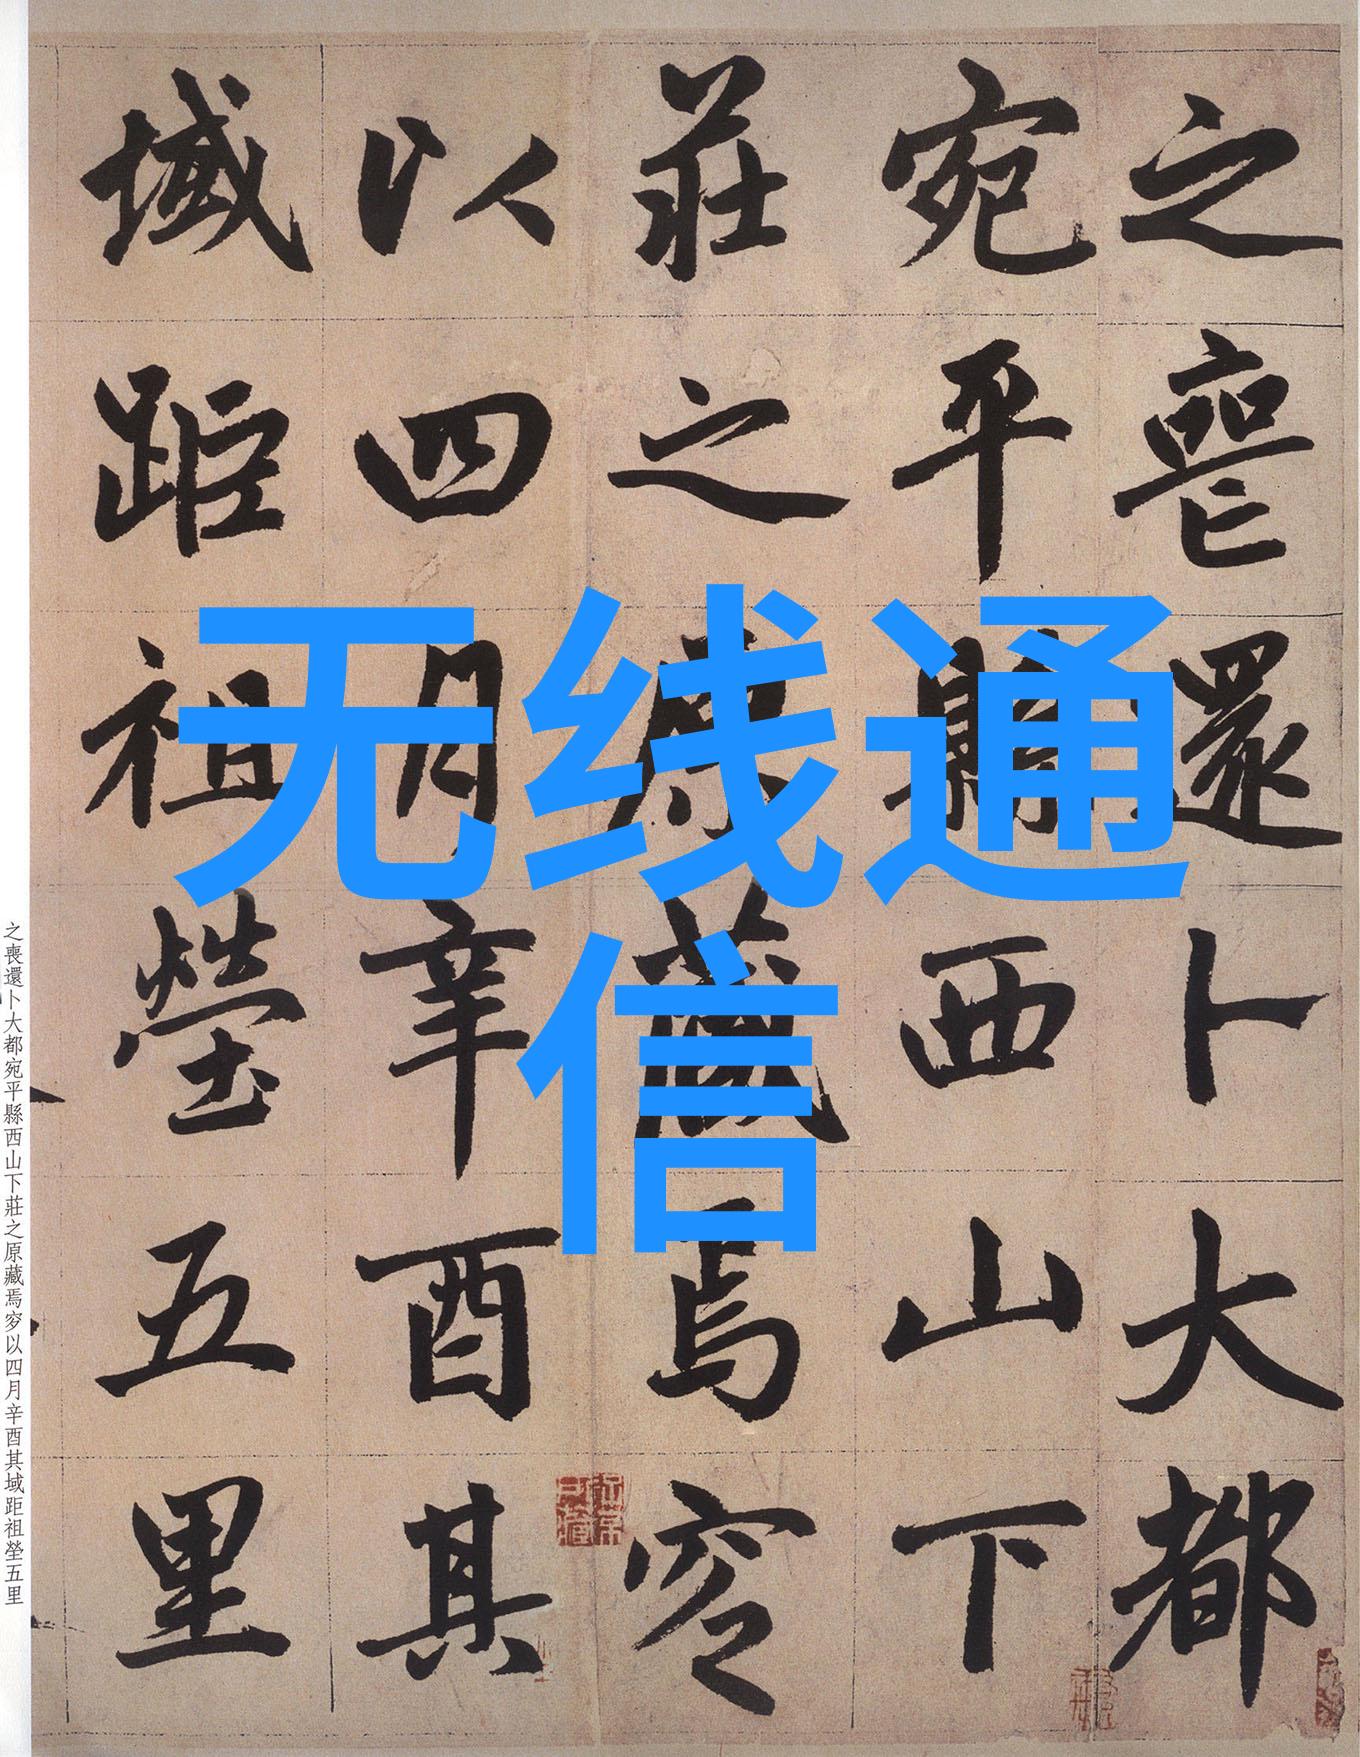 之喪還卜大都
宛平縣西山下
莊之原藏焉窆
以四月辛酉其
域距祖塋五里
无线通
信
之喪還卜大都宛平縣西山下莊之原藏焉窆以四月辛酉其域距祖塋五里